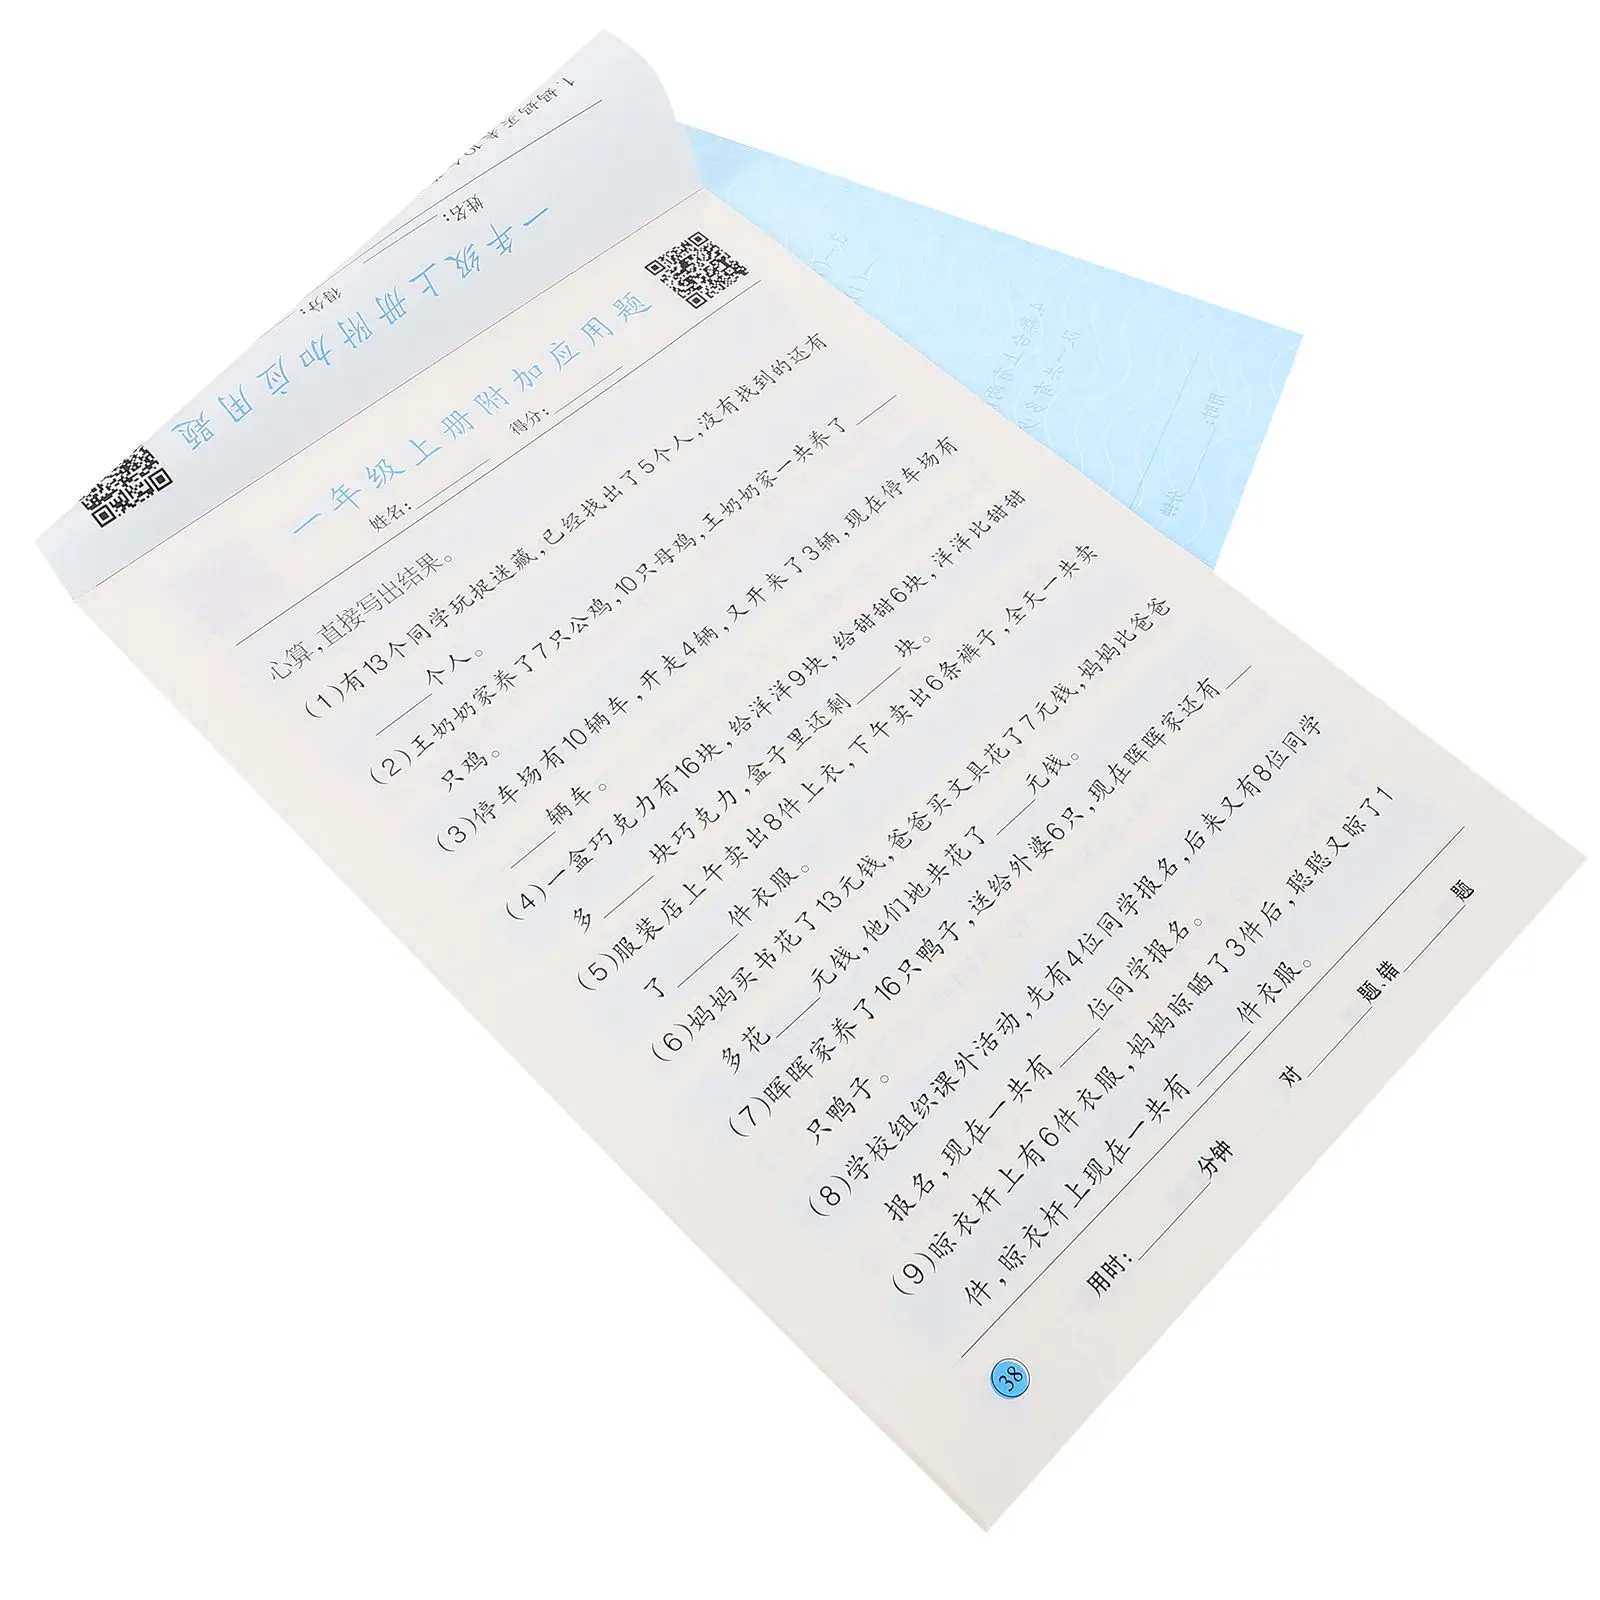 1.妈妈买来10个
姓名:
得分:
一年级上册附加应用题
一年级上册附加应用题
姓名:
得分:
心算,直接写出结果。
(1)有13个同学玩捉迷藏,已经找出了5个人,没有找到的还有
____个人。
(2)王奶奶家养了7只公鸡,10只母鸡,王奶奶家一共养了____
只鸡。
(3)停车场有10辆车,开走4辆,又开来了3辆,现在停车场有
____辆车。
(4)一盒巧克力有16块,给洋洋9块,给甜甜6块,洋洋比甜甜
多____块巧克力,盒子里还剩____块。
(5)服装店上午卖出8件上衣,下午卖出6条裤子,全天一共卖
了____件衣服。
(6)妈妈买书花了13元钱,爸爸买文具花了7元钱,妈妈比爸爸
多花____元钱,他们地共花了____元钱。
(7)晖晖家养了16只鸭子,送给外婆6只,现在晖晖家还有____
只鸭子。
(8)学校组织课外活动,先有4位同学报名,后来又有8位同学
报名,现在一共有____位同学报名。
(9)晾衣杆上有6件衣服,妈妈晾晒了3件后,聪聪又晾了1
件,晾衣杆上现在一共有____件衣服。
用时:____分钟 对____题,错____题
38